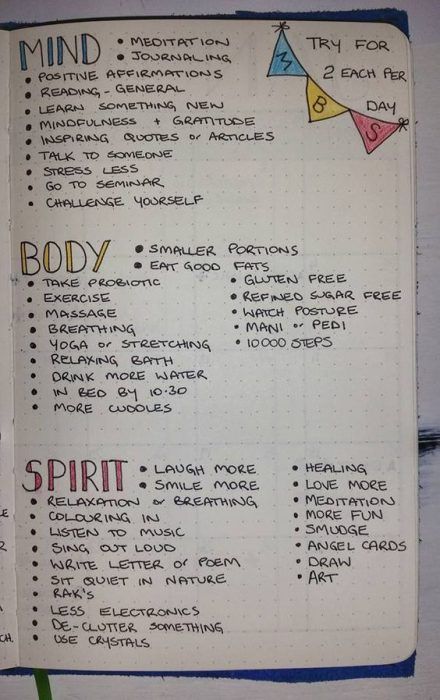 MIND
• MEDITATION
• JOURNALING
• POSITIVE AFFIRMATIONS
• READING - GENERAL
• LEARN SOMETHING NEW
• MINDFULNESS + GRATITUDE
• INSPIRING QUOTES or ARTICLES
• TALK TO SOMEONE
• STRESS LESS
• GO TO SEMINAR
• CHALLENGE YOURSELF
M
B
S
TRY FOR
2 EACH PER
DAY
BODY
• SMALLER PORTIONS
• EAT GOOD FATS
• TAKE PROBIOTIC
• EXERCISE
• MASSAGE
• BREATHING
• YOGA or STRETCHING
• RELAXING BATH
• DRINK MORE WATER
• IN BED BY 10.30
• MORE CUDDLES
• GLUTEN FREE
• REFINED SUGAR FREE
• WATCH POSTURE
• MANI or PEDI
• 10000 STEPS
SPIRIT
• LAUGH MORE
• SMILE MORE
• RELAXATION or BREATHING
• COLOURING IN
• LISTEN TO MUSIC
• SING OUT LOUD
• WRITE LETTER or POEM
• SIT QUIET IN NATURE
• RAK'S
• LESS ELECTRONICS
• DE-CLUTTER SOMETHING
• USE CRYSTALS
• HEALING
• LOVE MORE
• MEDITATION
• MORE FUN
• SMUDGE
• ANGEL CARDS
• DRAW
• ART